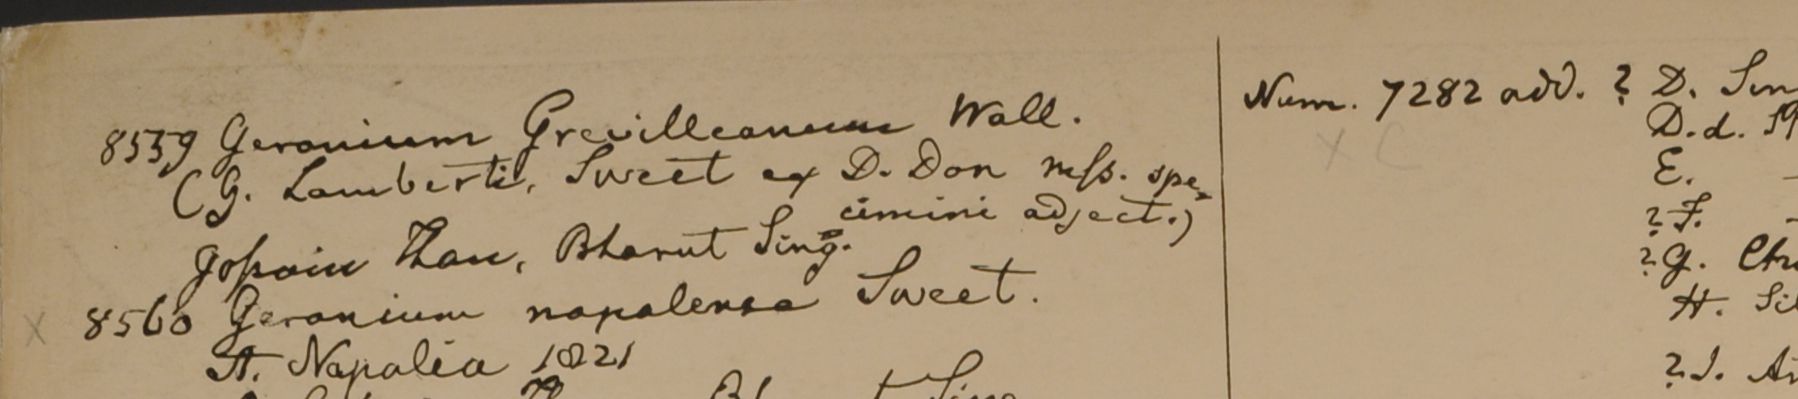 8559 Geranium Grevilleanum Wall.
(G. Lamberti, Sweet ex D. Don mſs. spe-
cimini adject.)
Goſsain Than, Bharut Sing.
X 8560 Geranium napalense Sweet.
A. Napalia 1821
Num. 7282 add. ? D.
X C
D.d.
E. -
? F. -
? G.
H.
? I.